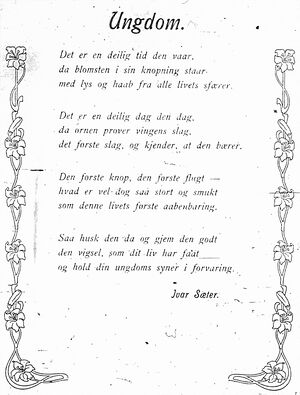 Ungdom.
Det er en deilig tid den vaar,
da blomsten i sin knopning staar
med lys og haab fra alle livets sfærer.
Det er en deilig dag den dag,
da ørnen prøver vingens slag,
det første slag, og kjender, at den bærer.
Den første knop, den første flugt —
hvad er vel dog saa stort og smukt
som denne livets første aabenbaring.
Saa husk den da og gjem den godt
den vigsel, som dit liv har faat
og hold din ungdoms syner i forvaring.
Ivar Sæter.